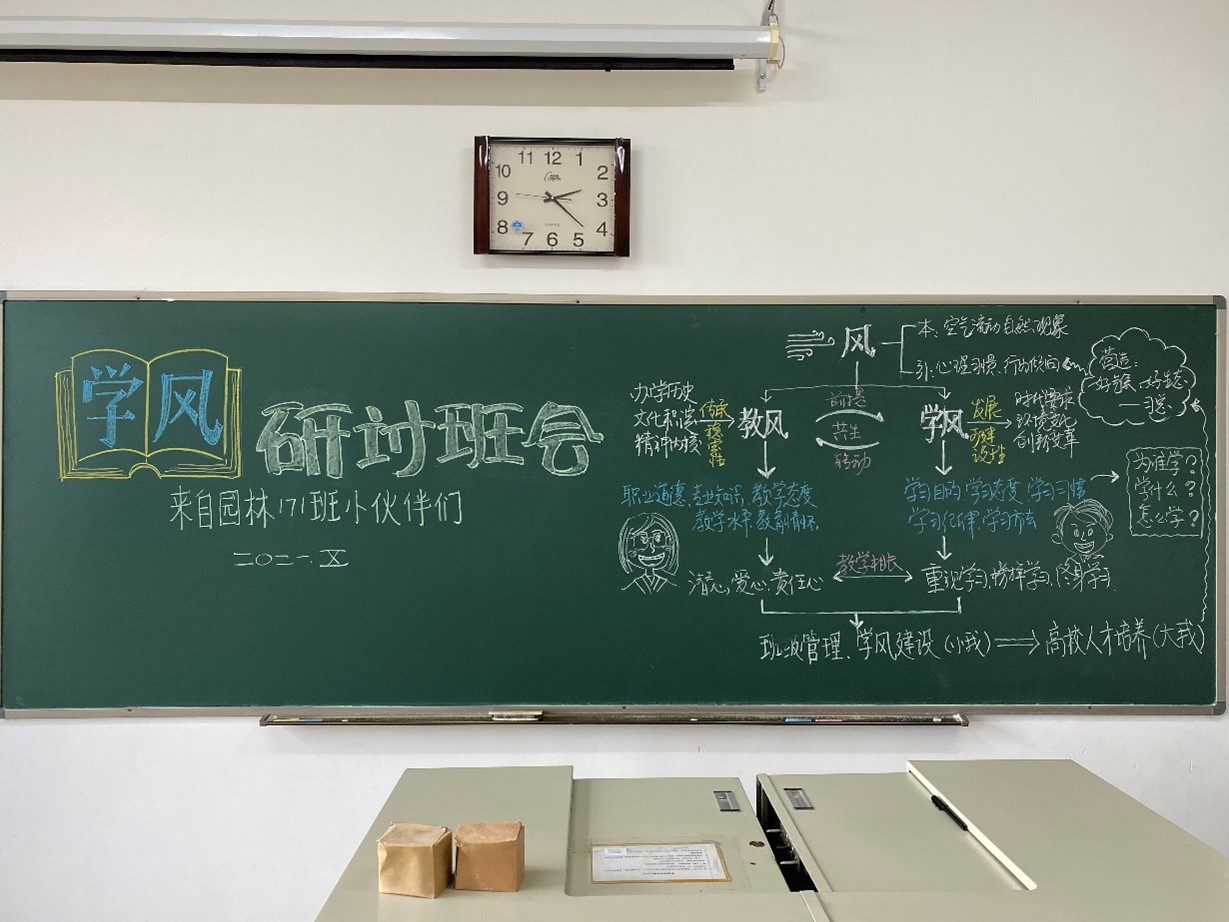 11 12 1
10 2
9 3
8 4
7 6 5
学风
研讨班会
来自园林171班小伙伴们
二〇二一.五
风
本:空气流动自然现象
引:心理习惯、行为倾向
营造:
办学历史
文化积淀
精神内核
传承
教风
前提
共生
学风
发展
时代要求
环境变化
创新变革
职业道德,专业知识,教学态度
教学水平,教育情怀
学习目的,学习态度,学习习惯
学习纪律,学习方法
为谁学?
学什么?
怎么学?
潜心,爱心,责任心
教学相长
重视学习,榜样学习,终身学习
班级管理、学风建设(小我)
高校人才培养(大我)